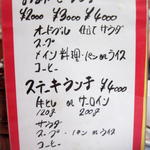 ¥2000 ¥3000 ¥4000
オードブル 又は サラダ
スープ
メイン料理・パン or ライス
コーヒー
ステーキランチ ¥4000
牛ヒレ or サーロイン
120g 200g
サラダ
スープ・パン or ライス
コーヒー